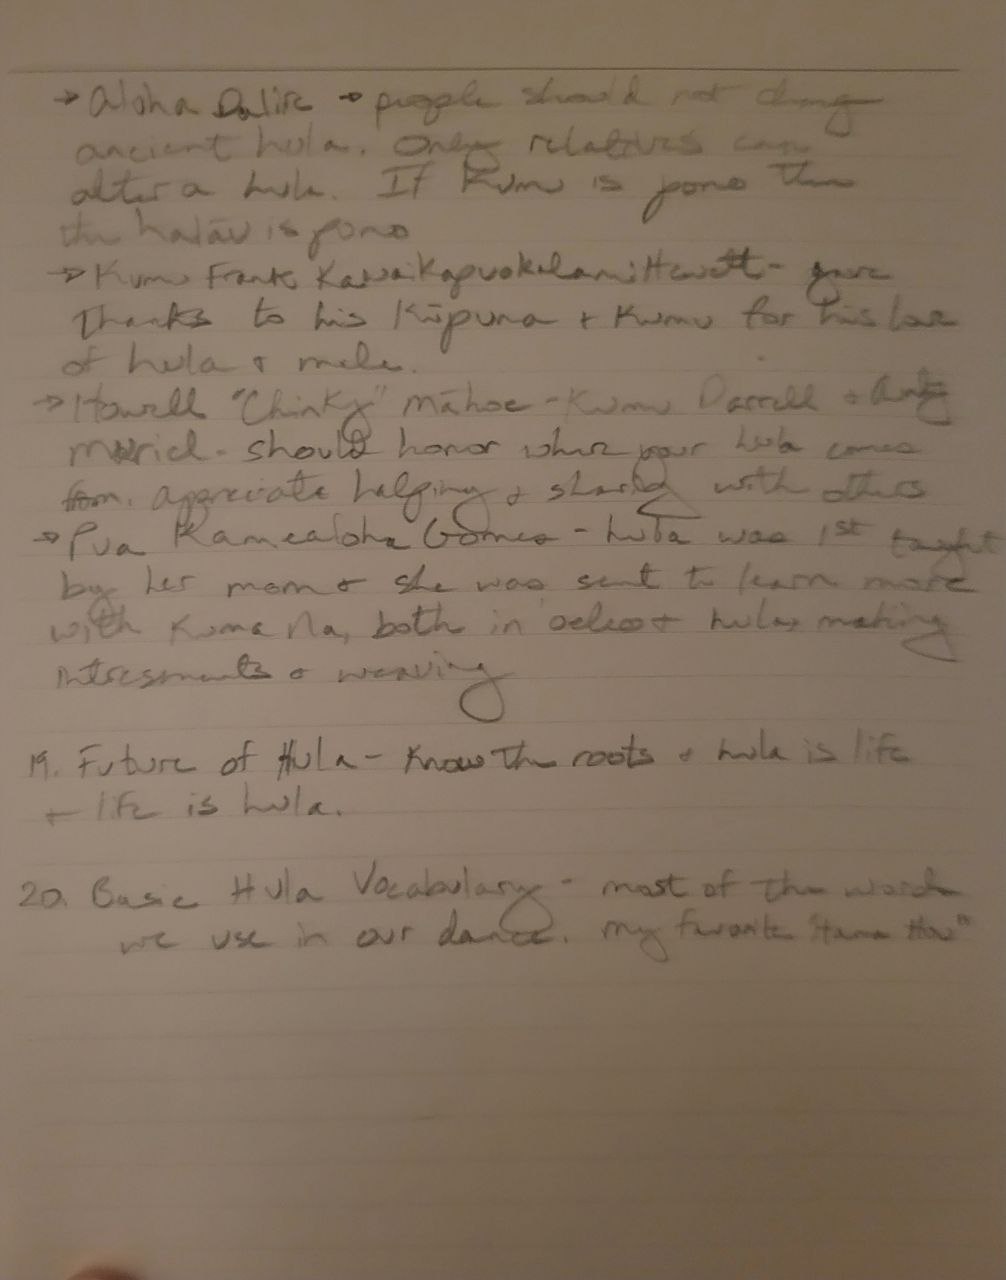 → Aloha Dalire → people should not chang
ancient hula. Only relatives can
alter a hula. If Kumu is pono then
the halau is pono
→ Kumu Frank Kawaikapuokalani Hewett - gave
Thanks to his Kūpuna + Kumu for his love
of hula + mele.
→ Howell "Chinky" Māhoe - Kumu Darrell + Aunty
Muriel - should honor where your hula comes
from, appreciate helping + sharing with others
→ Pua Kamealoha Gomes - hula was 1st taught
by her mom + she was sent to learn more
with Kuma Na, both in + hula, making
intresments + weaving
19. Future of Hula - Know The roots + hula is life
+ life is hula.
20. Basic Hula Vocabulary - most of the words
we use in our dance. My favorite "Hana Hou"